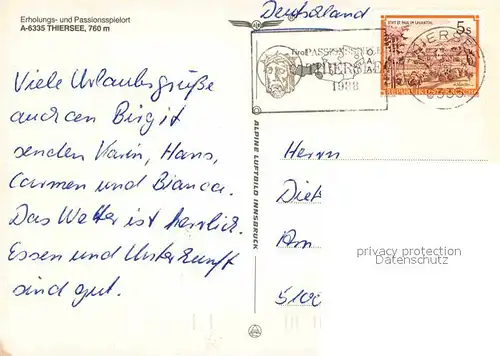 Erholungs- und Passionsspielort
A-6335 THIERSEE, 760 m
Viele Urlaubsgrüße
auch an Birgit
senden Karin, Hans,
Carmen und Bianca.
Das Wetter ist herrlich.
Essen und Unterkunft
sind gut.
ALPINE LUFTBILD INNSBRUCK
Deutschland
Tirol PASSIONS
THIERSEE
1988
STIFT ST. PAUL IM LAVANTTAL
5s
REPUBLIK ÖSTERREICH
THIERSEE
6335
Herrn
Diet
Am
5100
privacy protection
Datenschutz